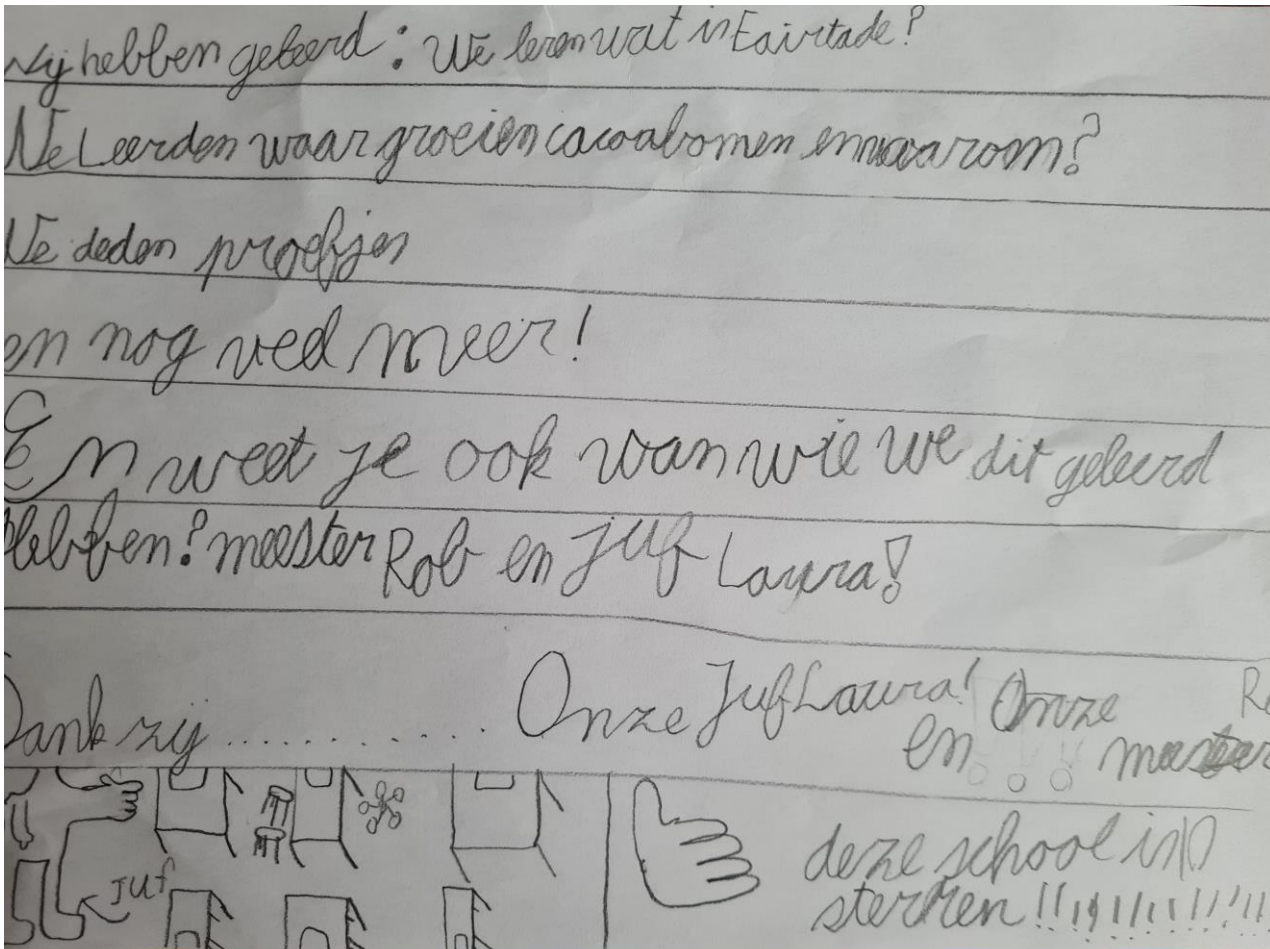 Wij hebben geleerd: We leren wat is Fairtade?
We Leerden waar groeien cacoabomen en waarom?
We deden proefjes
en nog veel meer!
En weet je ook van wie we dit geleerd
hebben? meester Rob en juf Laura!
Dankzij ............ Onze Juf Laura! Onze
en meester
juf
deze school is
sterren !!!!!!!!!!!!!